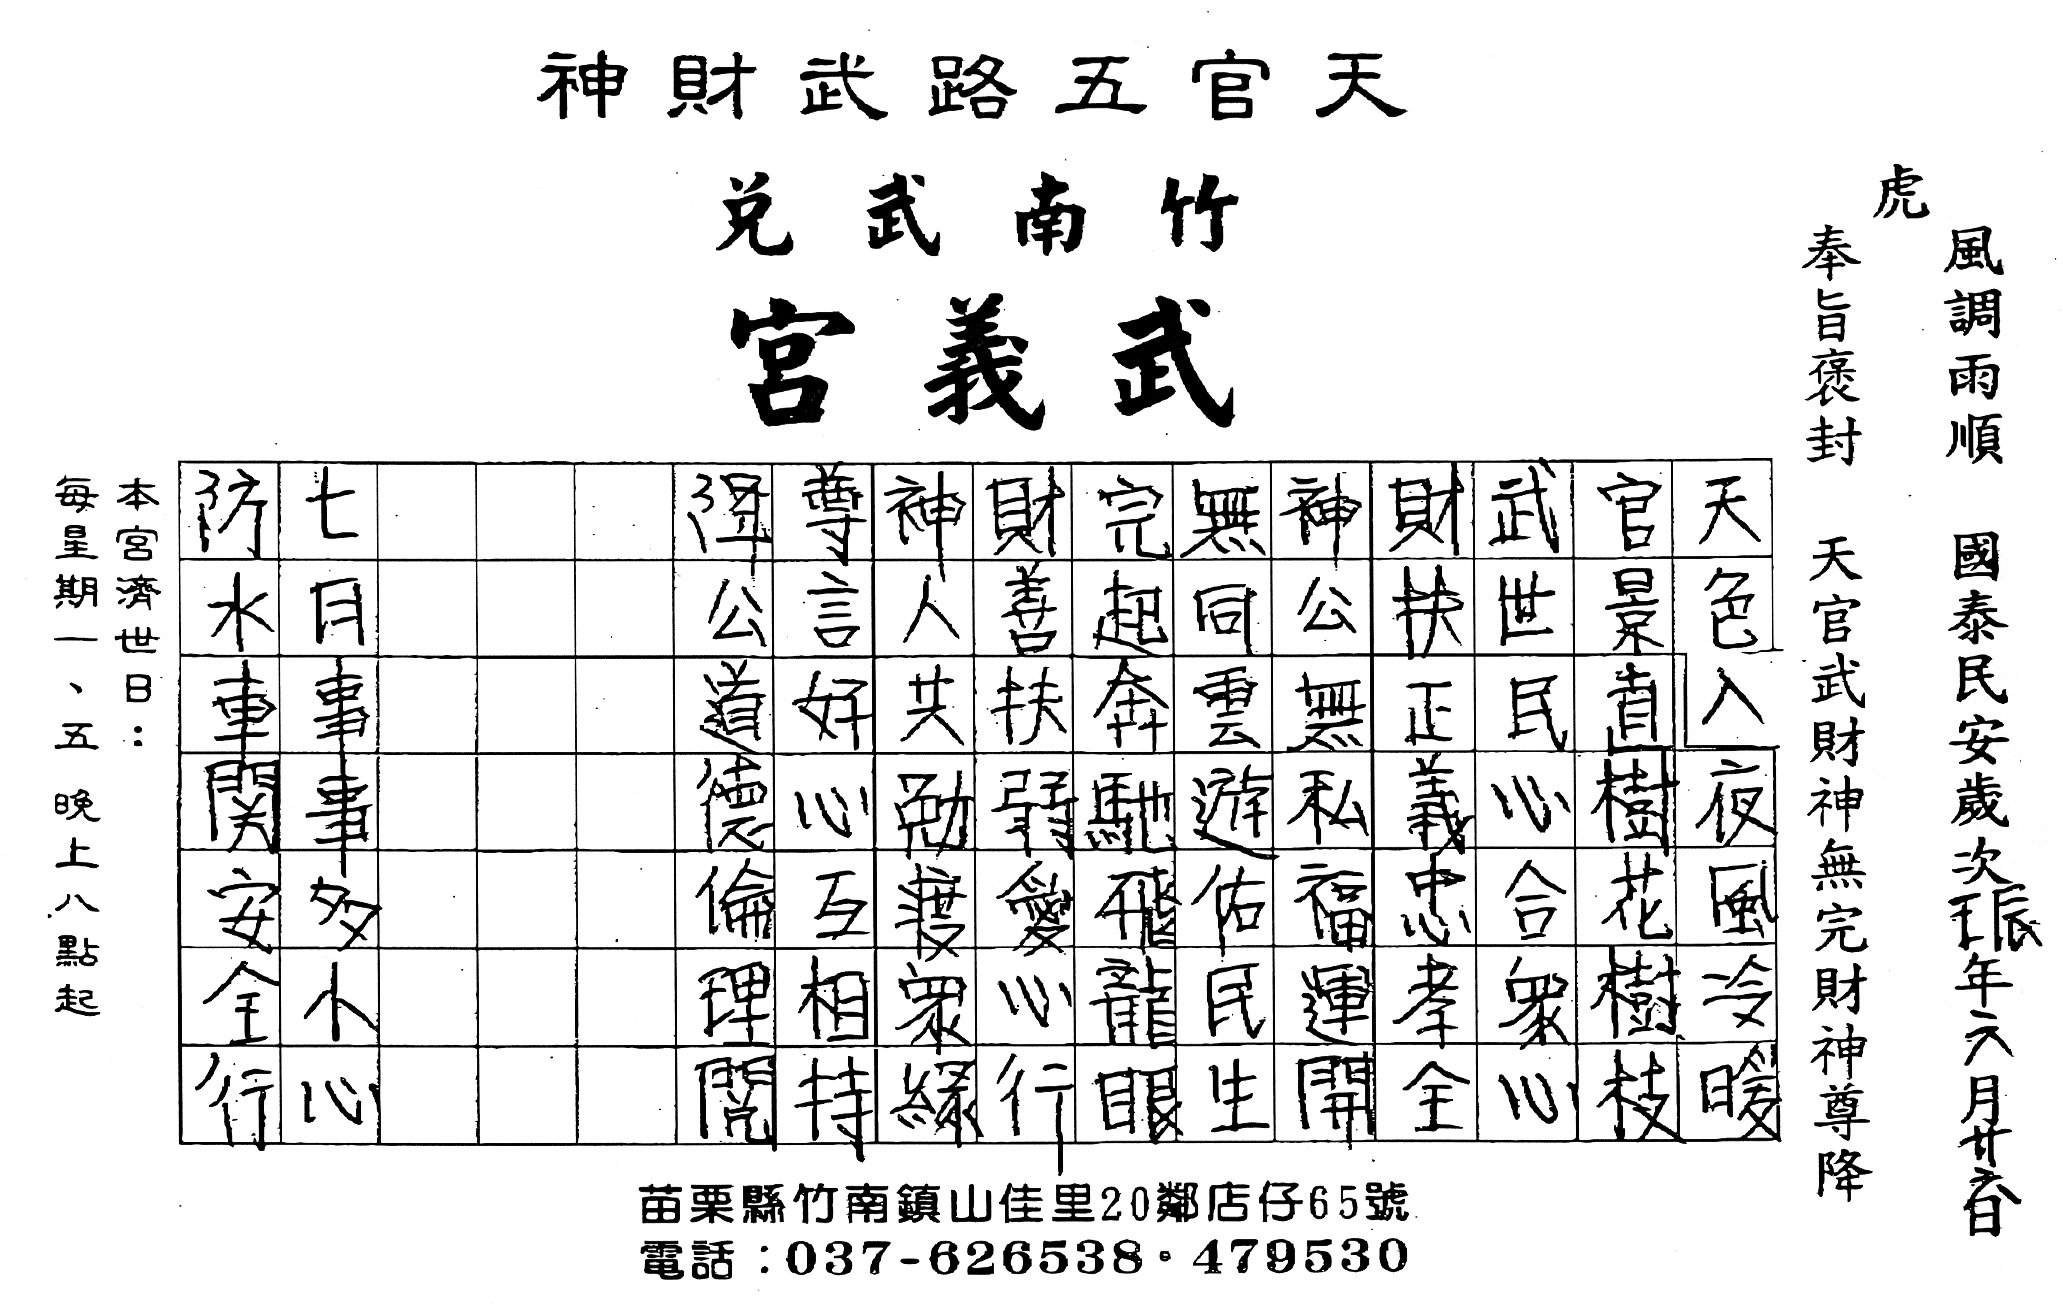 天官五路武財神
竹南武兌
武義宮
虎
風調雨順 國泰民安歲次壬辰年六月廿六日
奉旨褒封 天官武財神無完財神尊降
天色入夜風冷暖
官景青樹花樹枝
武世民心合眾心
財扶正義忠孝全
神公無私福運開
無同雲遊佑民生
完起奔馳飛龍眼
財善扶弱愛心行
神人共勉渡眾緣
尊言好心互相持
公道德倫理閱
七月事事多小心
防水車關安全行
本宮濟世日：
每星期一、五 晚上八點起
苗栗縣竹南鎮山佳里20鄰店仔65號
電話：037-626538・479530